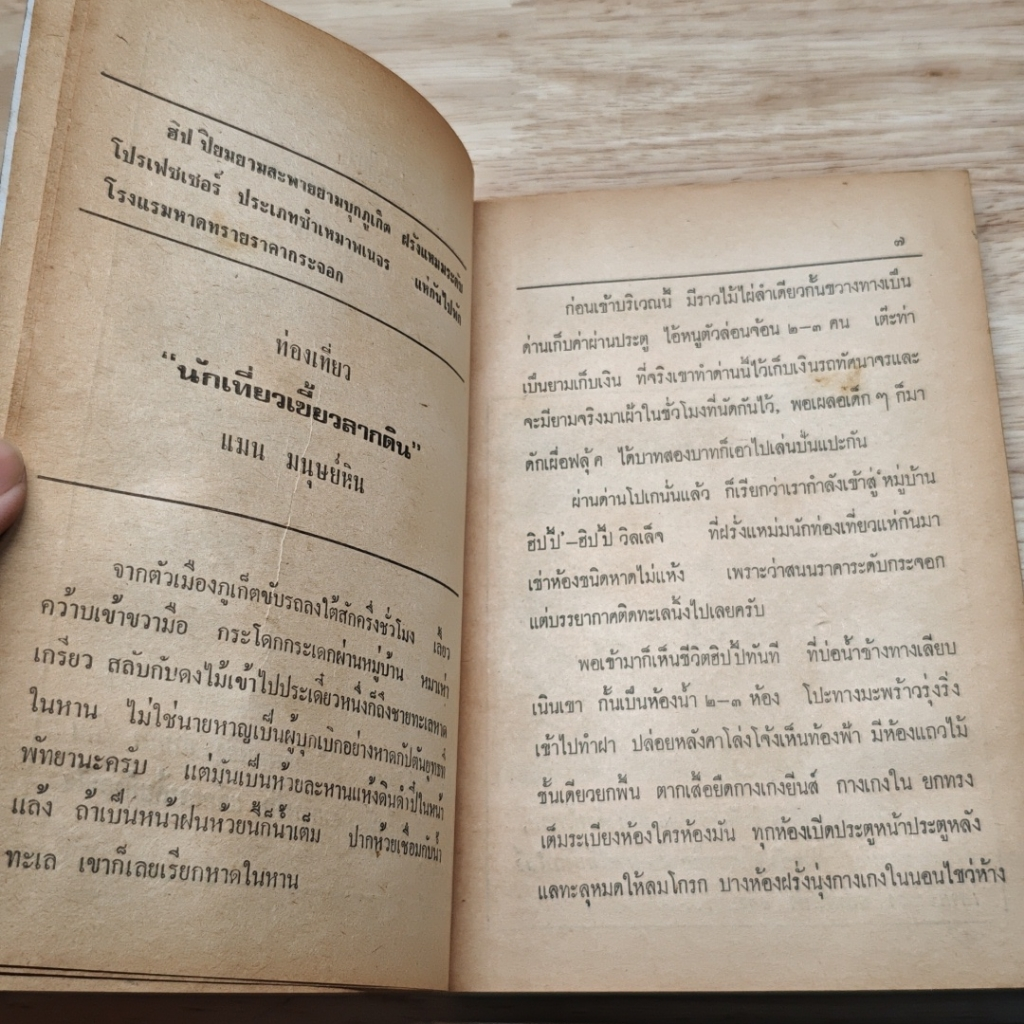 ฮิป ปี้ยมยามสะพายยามบุกภูเก็ต ฝรั่งแหมมระดับ
โปรเฟซเซอร์ ประเภทซำเหมาพเนจร แห่กันไปพัก
โรงแรมหาดทรายราคากระจอก
ท่องเที่ยว
“นักเที่ยวเขี้ยวลากดิน”
แมน มนุษย์หิน
จากตัวเมืองภูเก็ตขับรถลงใต้สักครึ่งชั่วโมง เลี้ยว
คว้าบเข้าขวามือ กระโดกกระเดกผ่านหมู่บ้าน หมาเห่า
เกรียว สลับกับดงไม้เข้าไปประเดี๋ยวหนึ่งก็ถึงชายทะเลหาด
ในหาน ไม่ใช่นายหาญเป็นผู้บุกเบิกอย่างหาดกัปตันยุทธที่
พัทยานะครับ แต่มันเป็นห้วยละหานแห้งดินดำปี๋ในหน้า
แล้ง ถ้าเป็นหน้าฝนห้วยนี้ก็น้ำเต็ม ปากห้วยเชื่อมกับน้ำ
ทะเล เขาก็เลยเรียกหาดในหาน
๗
ก่อนเข้าบริเวณนี้ มีราวไม้ไผ่ลำเดียวกั้นขวางทางเป็น
ด่านเก็บค่าผ่านประตู ไอ้หนูตัวล่อนจ้อน ๒–๓ คน เต๊ะท่า
เป็นยามเก็บเงิน ที่จริงเขาทำด่านนี้ไว้เก็บเงินรถทัศนาจรและ
จะมียามจริงมาเฝ้าในชั่วโมงที่นัดกันไว้, พอเผลอเด็ก ๆ ก็มา
ดักเผื่อฟลุ้ค ได้บาทสองบาทก็เอาไปเล่นปั่นแปะกัน
ผ่านด่านโปเกนั้นแล้ว ก็เรียกว่าเรากำลังเข้าสู่ "หมู่บ้าน
ฮิปปี้"–ฮิปปี้ วิลเล็จ ที่ฝรั่งแหม่มนักท่องเที่ยวแห่กันมา
เช่าห้องชนิดหาดไม่แห้ง เพราะว่าสนนราคาระดับกระจอก
แต่บรรยากาศติดทะเลนิ้งไปเลยครับ
พอเข้ามาก็เห็นชีวิตฮิปปี้ทันที ที่บ่อน้ำข้างทางเลียบ
เนินเขา กั้นเป็นห้องน้ำ ๒–๓ ห้อง โปะทางมะพร้าวรุ่งริ่ง
เข้าไปทำฝา ปล่อยหลังคาโล่งโจ้งเห็นท้องฟ้า มีห้องแถวไม้
ชั้นเดียวยกพื้น ตากเสื้อยืดกางเกงยีนส์ กางเกงใน ยกทรง
เต็มระเบียงห้องใครห้องมัน ทุกห้องเปิดประตูหน้าประตูหลัง
แลทะลุหมดให้ลมโกรก บางห้องฝรั่งนุ่งกางเกงในนอนไขว่ห้าง